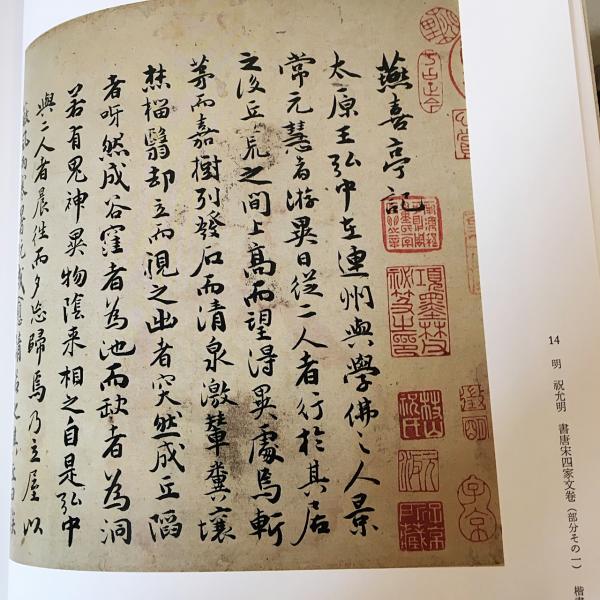 燕喜亭記
太原王弘中在連州與學佛之人景
常元慧者游異日從二人者行於其居
之後丘荒之間上高而望得異處焉斬
茅而嘉樹列發石而清泉激輦糞壤
焚榴翳却立而視之出者突然成丘陷
者呀然成谷窪者為池而缺者為洞
若有鬼神異物陰来相之自是弘中
與二人者晨往而夕忘歸焉乃立屋以
項墨林祕笈之印
子京
14 明 祝允明 書唐宋四家文巻(部分その一) 楷